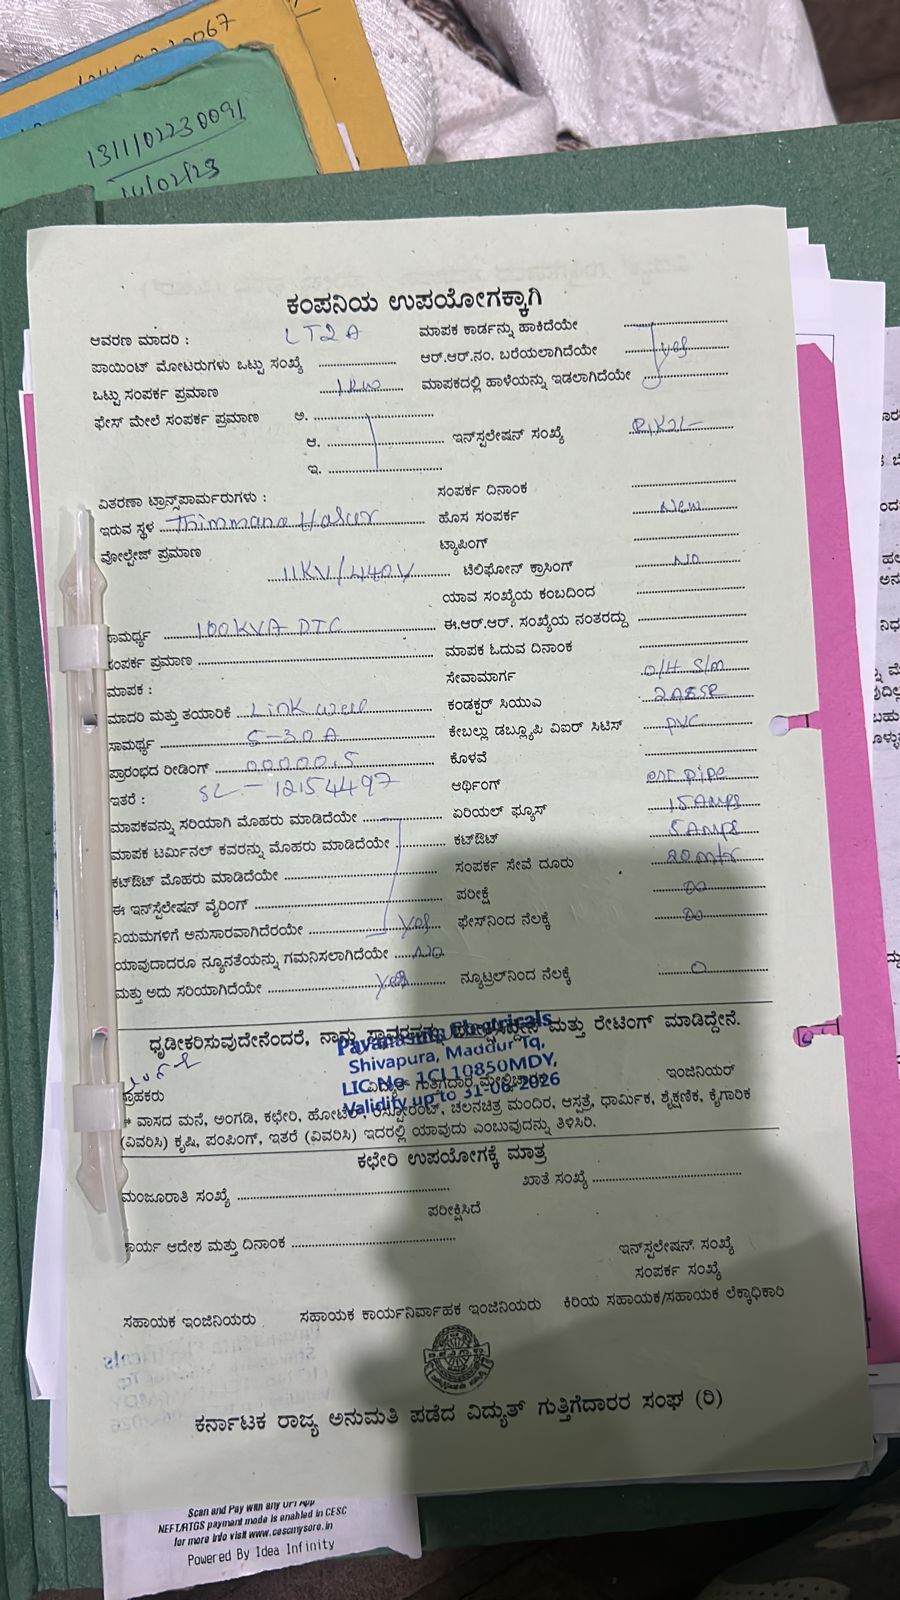 1311102230091
14/02/23
ಕಂಪನಿಯ ಉಪಯೋಗಕ್ಕಾಗಿ
ಆವರಣ ಮಾದರಿ : LT2A
ಮಾಪಕ ಕಾರ್ಡನ್ನು ಹಾಕಿದೆಯೇ
ಪಾಯಿಂಟ್ ಮೋಟರುಗಳು ಒಟ್ಟು ಸಂಖ್ಯೆ
ಆರ್.ಆರ್.ನಂ. ಬರೆಯಲಾಗಿದೆಯೇ yes
ಒಟ್ಟು ಸಂಪರ್ಕ ಪ್ರಮಾಣ 1KW
ಮಾಪಕದಲ್ಲಿ ಹಾಳೆಯನ್ನು ಇಡಲಾಗಿದೆಯೇ
ಫೇಸ್ ಮೇಲೆ ಸಂಪರ್ಕ ಪ್ರಮಾಣ ಅ.
ಆ.
ಇನ್‌ಸ್ಪಲೇಷನ್ ಸಂಖ್ಯೆ
ಇ.
ವಿತರಣಾ ಟ್ರಾನ್ಸ್‌ಪಾರ್ಮರುಗಳು :
ಸಂಪರ್ಕ ದಿನಾಂಕ
ಇರುವ ಸ್ಥಳ Thimmana Halur
ಹೊಸ ಸಂಪರ್ಕ New
ವೋಲ್ಟೇಜ್ ಪ್ರಮಾಣ
ಟ್ಯಾಪಿಂಗ್
11KV/440V
ಟಿಲಿಫೋನ್ ಕ್ರಾಸಿಂಗ್ NO
ಯಾವ ಸಂಖ್ಯೆಯ ಕಂಬದಿಂದ
ಸಾಮರ್ಥ್ಯ 100KVA DTC
ಈ.ಆರ್.ಆರ್. ಸಂಖ್ಯೆಯ ನಂತರದ್ದು
ಸಂಪರ್ಕ ಪ್ರಮಾಣ
ಮಾಪಕ ಓದುವ ದಿನಾಂಕ
ಮಾಪಕ :
ಸೇವಾಮಾರ್ಗ O/H S/m
ಮಾದರಿ ಮತ್ತು ತಯಾರಿಕೆ Link well
ಕಂಡಕ್ಟರ್ ಸಿಯುಎ
ಸಾಮರ್ಥ್ಯ 5-30A
ಕೇಬಲ್ಲು ಡಬ್ಲ್ಯೂಪಿ ವಿಐರ್ ಸಿಟಿಸ್ PVC
ಪ್ರಾರಂಭದ ರೀಡಿಂಗ್ 00000.5
ಕೊಳವೆ
ಇತರೆ : SL.-12154497
ಆರ್ಥಿಂಗ್ pipe
ಮಾಪಕವನ್ನು ಸರಿಯಾಗಿ ಮೊಹರು ಮಾಡಿದೆಯೇ
ಏರಿಯಲ್ ಫ್ಯೂಸ್ 15 Amps
ಮಾಪಕ ಟರ್ಮಿನಲ್ ಕವರನ್ನು ಮೊಹರು ಮಾಡಿದೆಯೇ
ಕಟ್‌ಔಟ್ 5 Amps
ಕಟ್‌ಔಟ್ ಮೊಹರು ಮಾಡಿದೆಯೇ
ಸಂಪರ್ಕ ಸೇವೆ ದೂರು 20 mtr
ಈ ಇನ್‌ಸ್ಪೆಲೇಷನ್ ವೈರಿಂಗ್
ಪರೀಕ್ಷೆ
ನಿಯಮಗಳಿಗೆ ಅನುಸಾರವಾಗಿದೆರಯೇ yes
ಫೇಸ್‌ನಿಂದ ನೆಲಕ್ಕೆ
ಯಾವುದಾದರೂ ನ್ಯೂನತೆಯನ್ನು ಗಮನಿಸಲಾಗಿದೆಯೇ NO
ಮತ್ತು ಅದು ಸರಿಯಾಗಿದೆಯೇ yes
ನ್ಯೂಟ್ರಲ್‌ನಿಂದ ನೆಲಕ್ಕೆ 0
ಧೃಡೀಕರಿಸುವುದೇನೆಂದರೆ, ನಾನು ಮತ್ತು ರೇಟಿಂಗ್ ಮಾಡಿದ್ದೇನೆ.
Electricals
Shivapura, Maddur Tq,
LIC No. 1CL10850MDY,
Validity up to 31-08-2026
ಗ್ರಾಹಕರು
ವಿದ್ಯುತ್ ಗುತ್ತಿಗೆದಾರ
ಇಂಜಿನಿಯರ್
* ವಾಸದ ಮನೆ, ಅಂಗಡಿ, ಕಛೇರಿ, ಹೋಟೆಲ್, ರೆಸ್ಟೋರೆಂಟ್, ಚಲನಚಿತ್ರ ಮಂದಿರ, ಆಸ್ಪತ್ರೆ, ಧಾರ್ಮಿಕ, ಶೈಕ್ಷಣಿಕ, ಕೈಗಾರಿಕ
(ವಿವರಿಸಿ) ಕೃಷಿ, ಪಂಪಿಂಗ್, ಇತರೆ (ವಿವರಿಸಿ) ಇದರಲ್ಲಿ ಯಾವುದು ಎಂಬುವುದನ್ನು ತಿಳಿಸಿರಿ.
ಕಛೇರಿ ಉಪಯೋಗಕ್ಕೆ ಮಾತ್ರ
ಮಂಜೂರಾತಿ ಸಂಖ್ಯೆ
ಖಾತೆ ಸಂಖ್ಯೆ
ಪರೀಕ್ಷಿಸಿದೆ
ಕಾರ್ಯ ಆದೇಶ ಮತ್ತು ದಿನಾಂಕ
ಇನ್‌ಸ್ಪಲೇಷನ್ ಸಂಖ್ಯೆ
ಸಂಪರ್ಕ ಸಂಖ್ಯೆ
ಸಹಾಯಕ ಇಂಜಿನಿಯರು ಸಹಾಯಕ ಕಾರ್ಯನಿರ್ವಾಹಕ ಇಂಜಿನಿಯರು ಕಿರಿಯ ಸಹಾಯಕ/ಸಹಾಯಕ ಲೆಕ್ಕಾಧಿಕಾರಿ
ಕರ್ನಾಟಕ ರಾಜ್ಯ ಅನುಮತಿ ಪಡೆದ ವಿದ್ಯುತ್ ಗುತ್ತಿಗೆದಾರರ ಸಂಘ (ರಿ)
Scan and Pay with any UPI App
NEFT/RTGS payment mode is enabled in CESC
for more info visit www.cescmysore.in
Powered By Idea Infinity